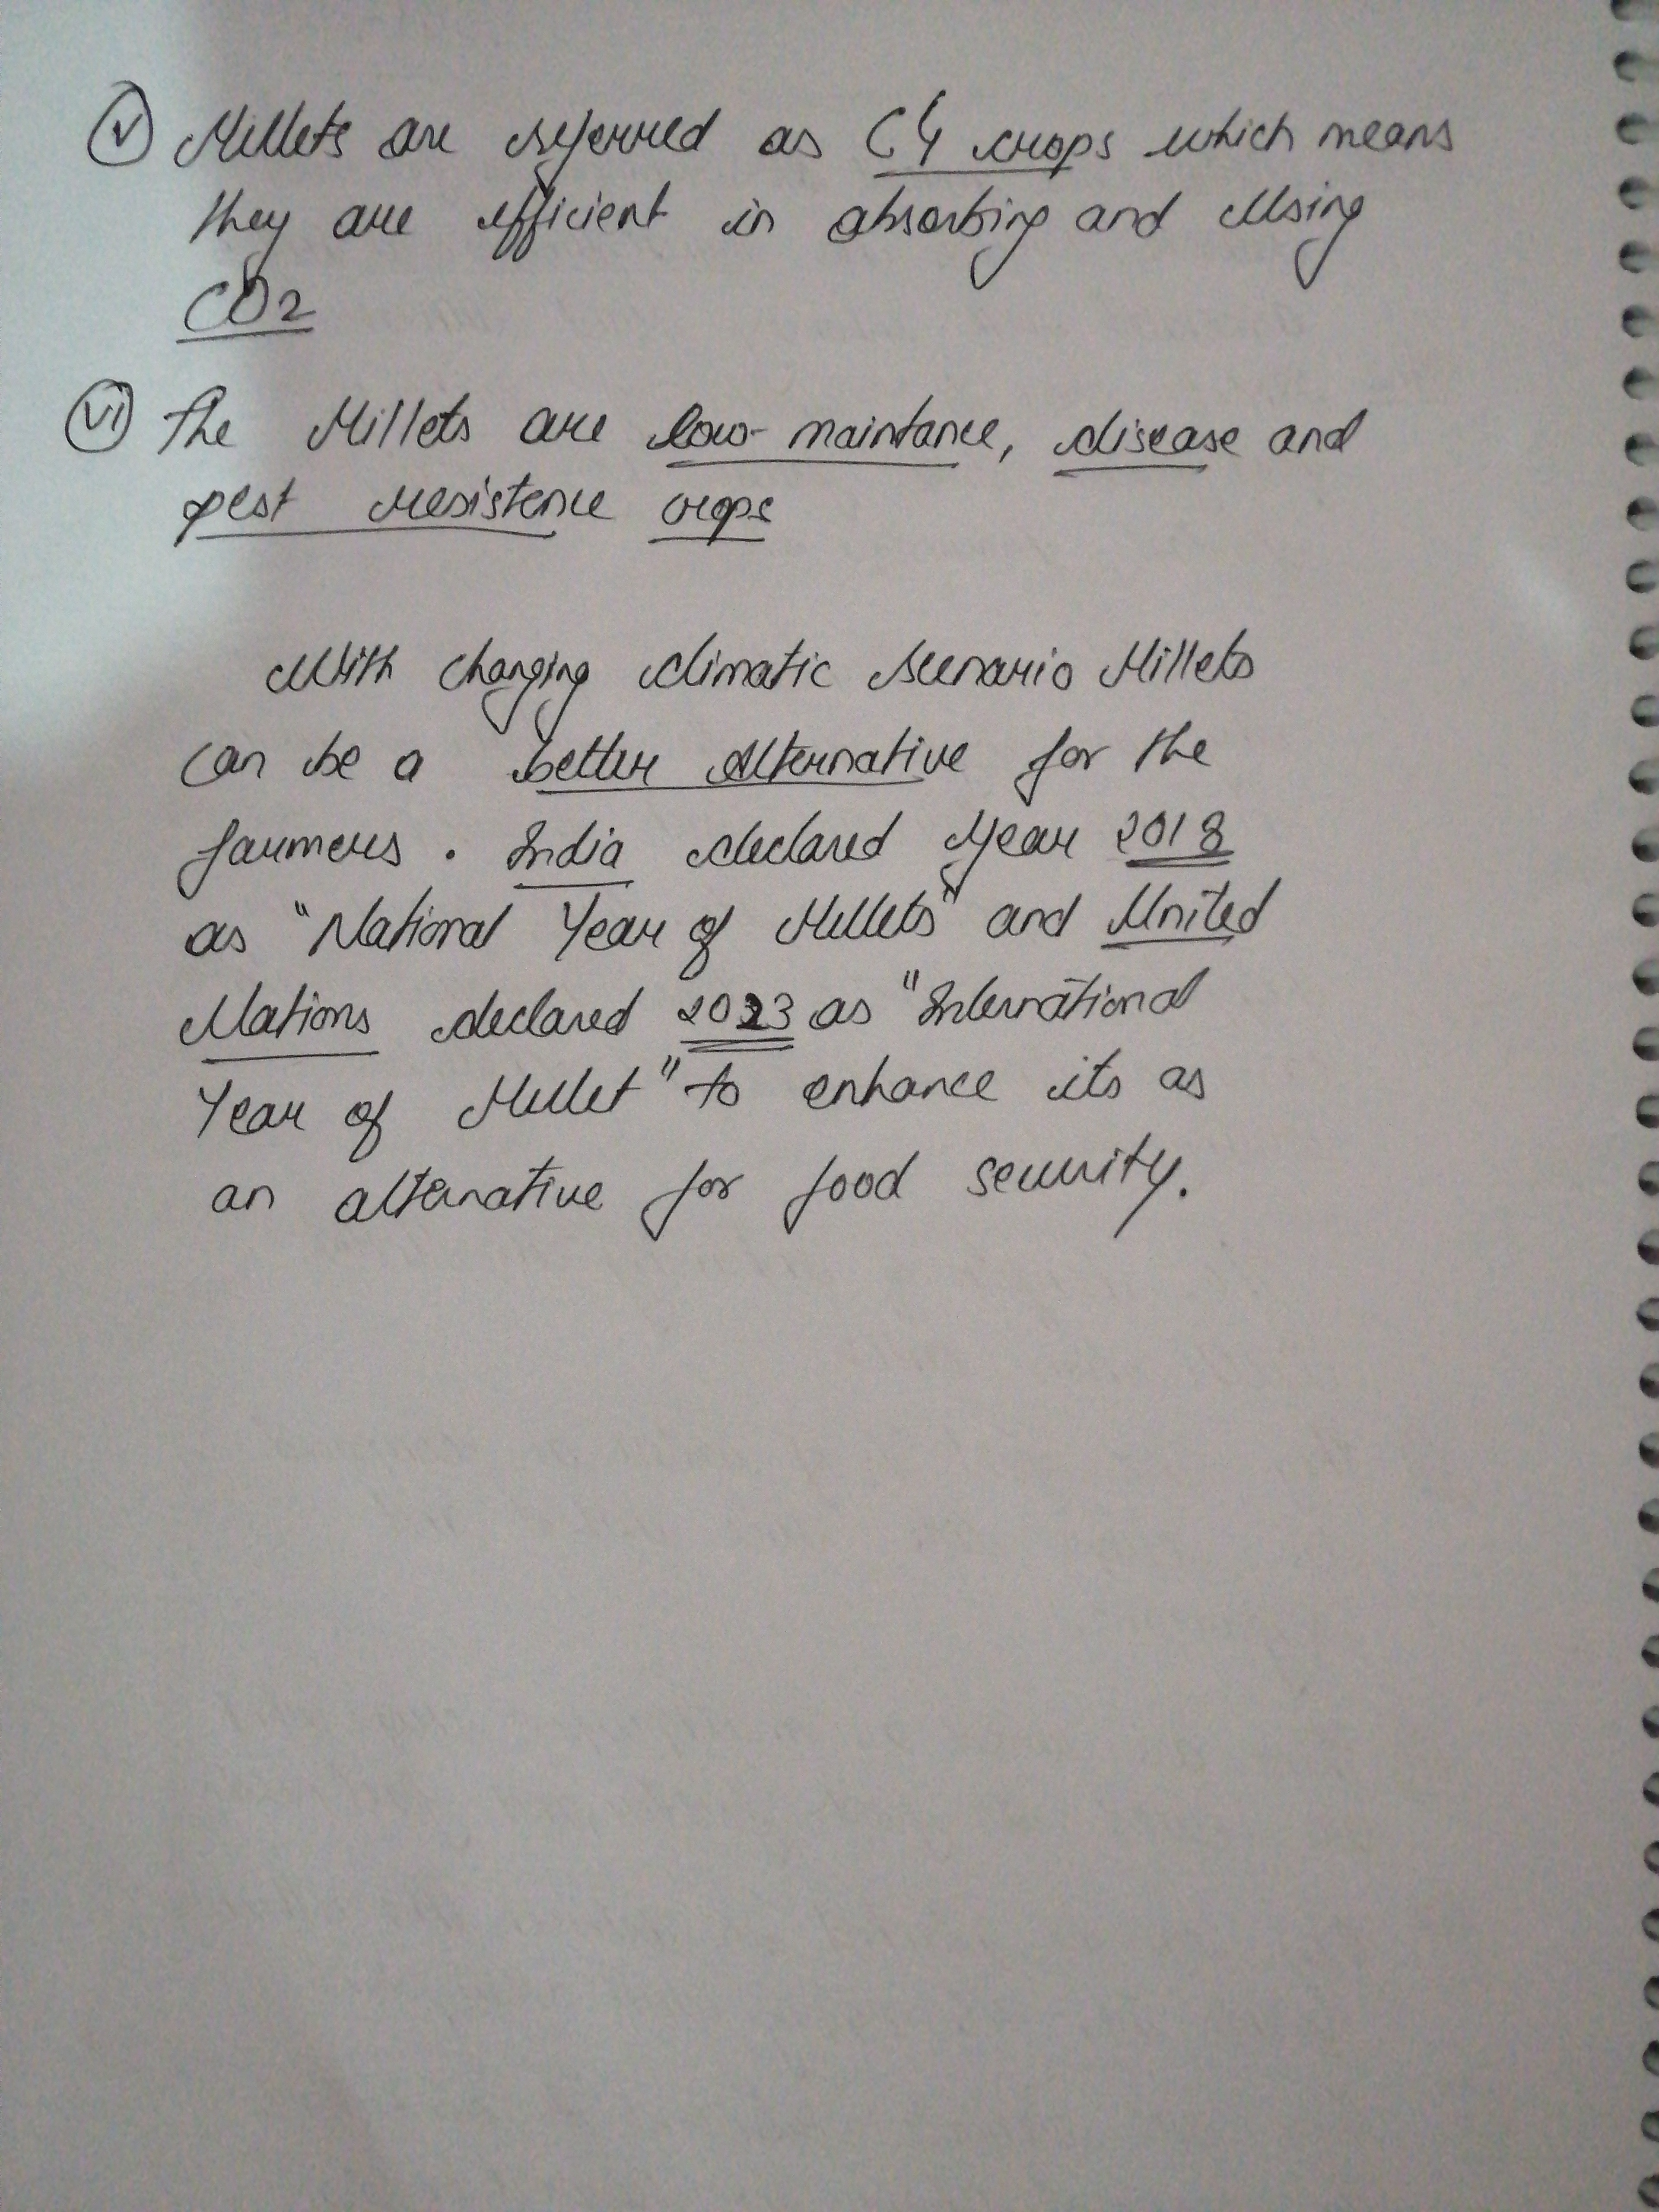 (v) Millets are referred as C4 crops which means
they are efficient in absorbing and using
CO2
(vi) The Millets are low-maintance, disease and
pest resistence crops
With changing climatic scenario Millets
can be a better alternative for the
farmers. India declared year 2018
as "National Year of Millets" and United
Nations declared 2023 as "International
Year of Millet" to enhance its as
an alternative for food security.